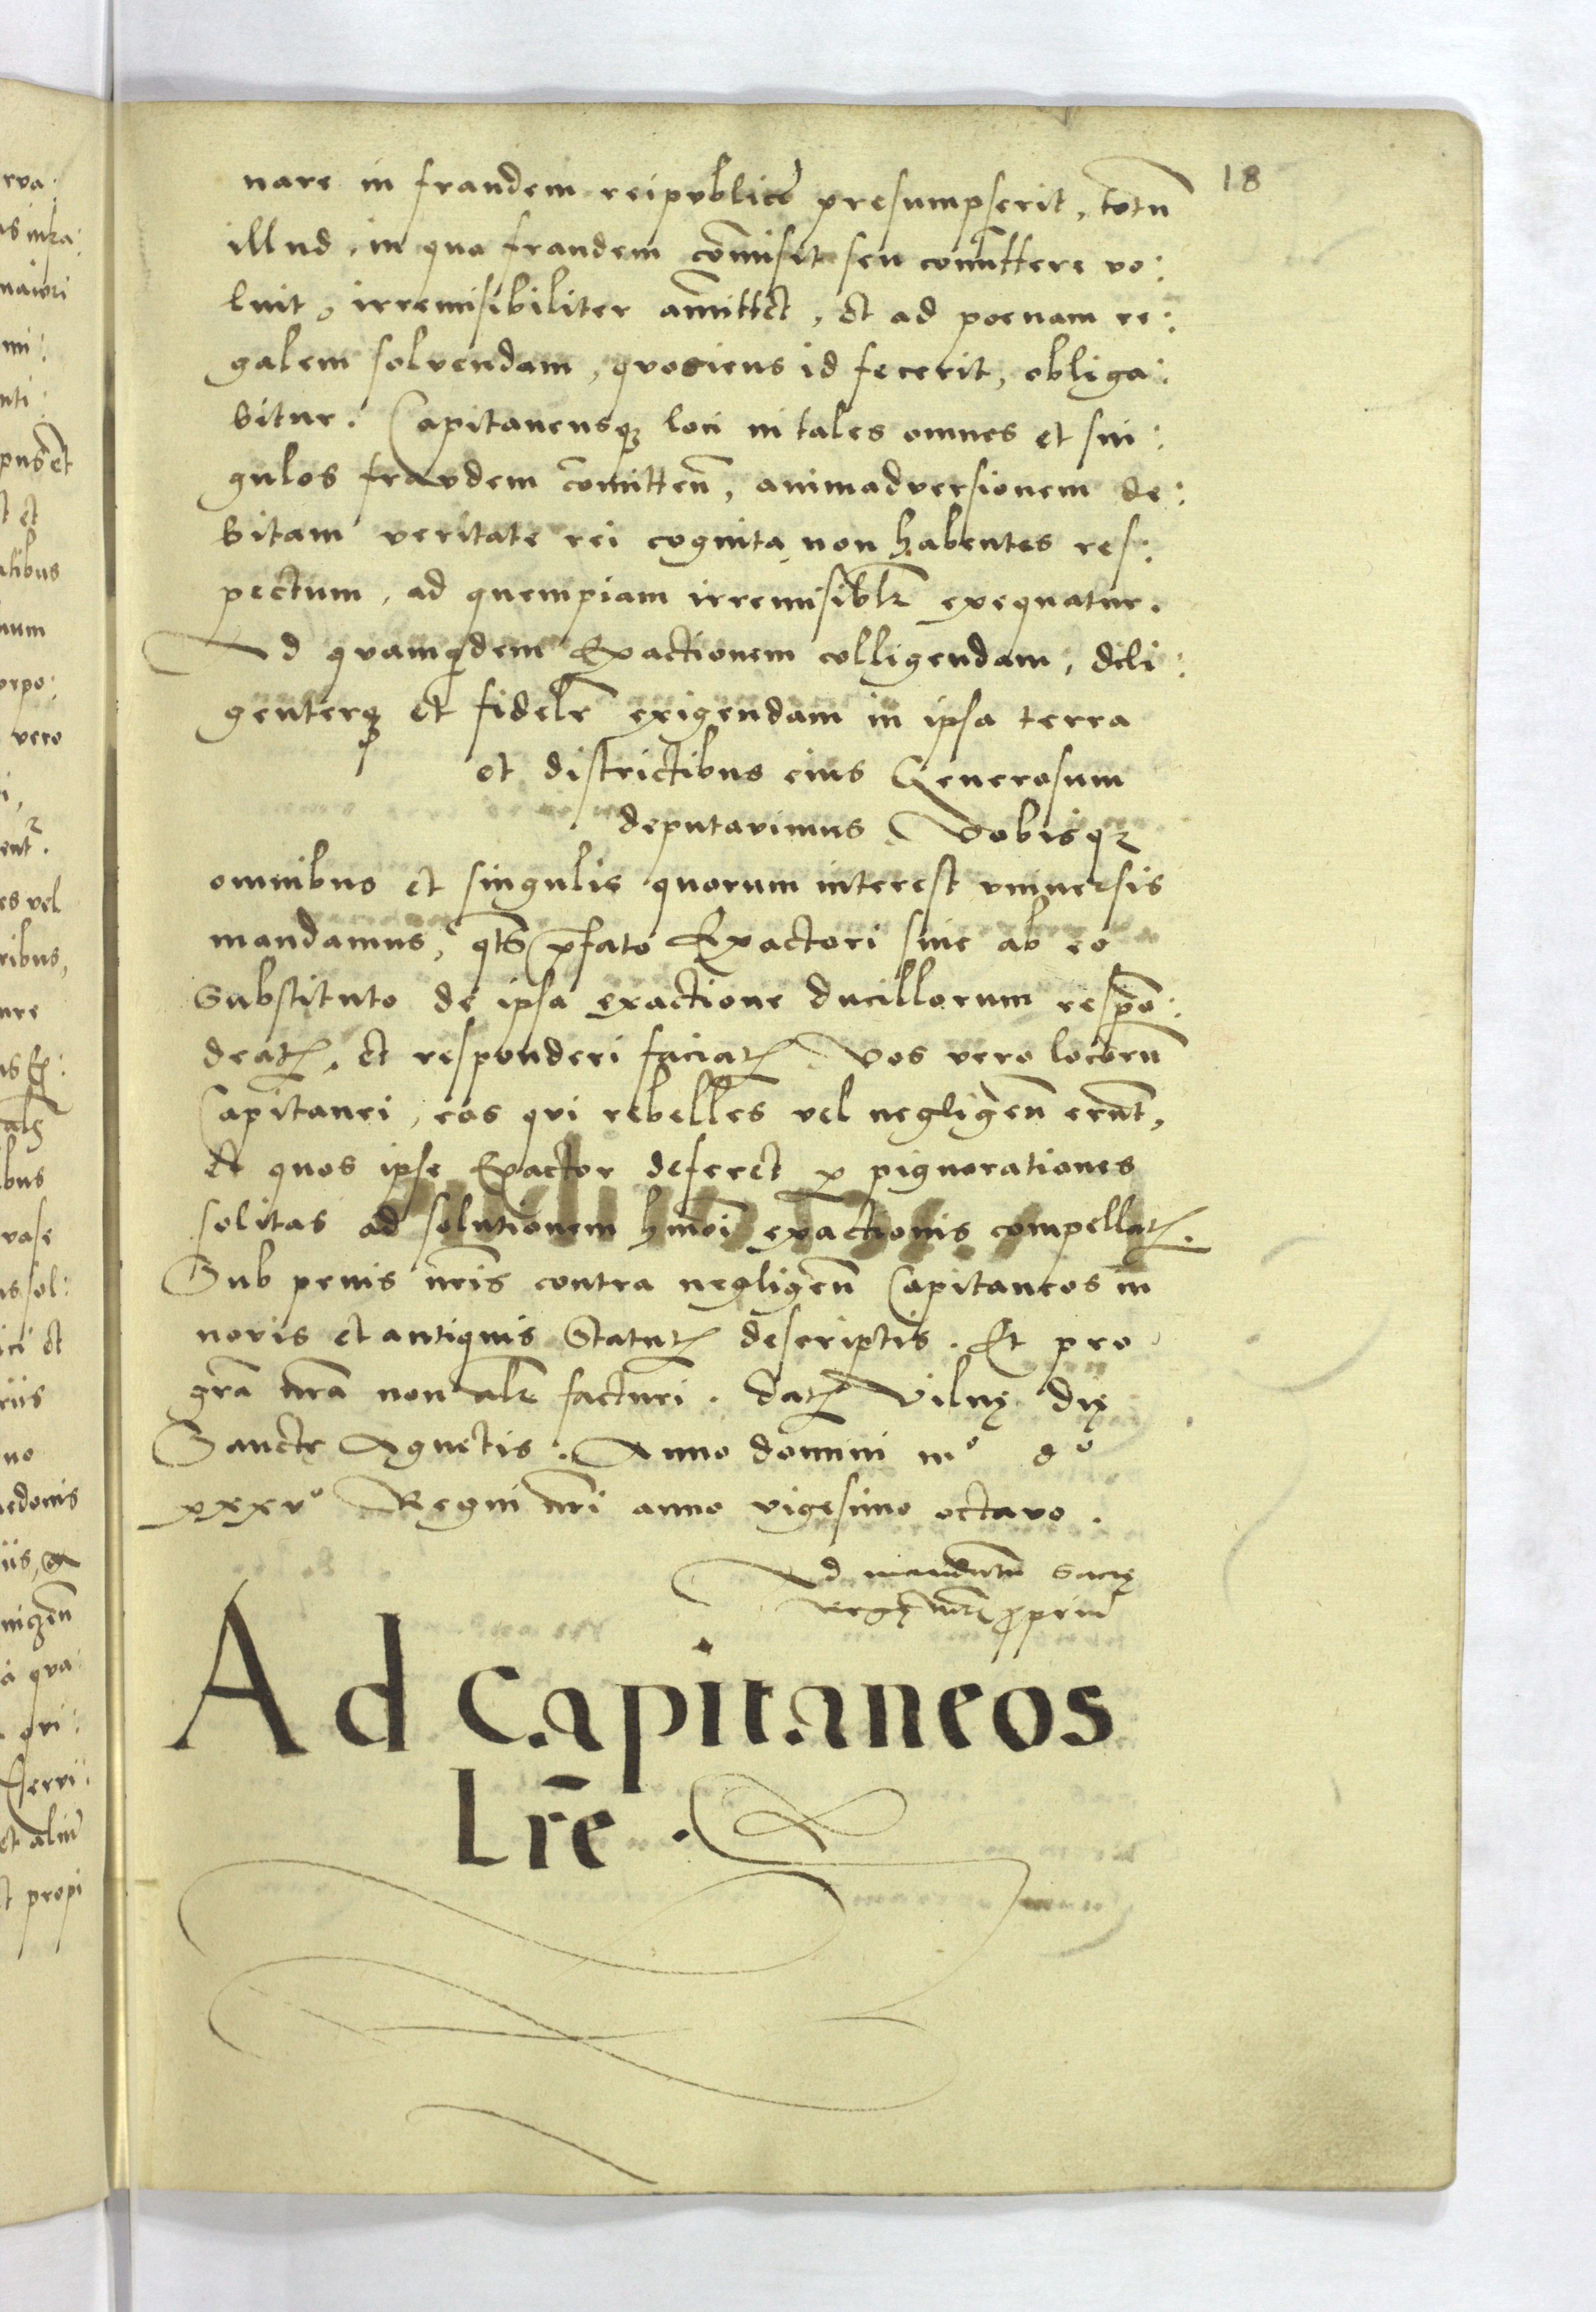 18
nare in fraudem reipublicȩ presumpserit, totū
illud, in qua fraudem cōmisit seu comittere vo:
luit, irremisibiliter am̄ittet, et ad poenam re:
galem solvendam, quociens id fecerit, obliga:
bitur. Capitaneusq̨ loci in tales omnes et sin:
gulos fraudem com̄itteñ, animadversionem de:
bitam veritate rei cognita, non habentes res:
pectum, ad quempiam irremisiblr̄ exequatur.
Ad quamqdem Exactionem colligendam, dili:
genterq̨ et fidelr̄ exigendam in ipsa terra
et districtibus eius Generosum
deputavimus. Vobisq̨
omnibus et singulis quorum interest vniuersis
mandamus, qts p̄fato Exactori siue ab eo
Substituto de ipsa exactione ducillorum respo:
deatꝭ, et responderi faciatꝭ. Vos vero locorū
Capitanei, eos qui rebelles vel negligeñ erūt,
et quos ipse Exactor deferet p̱ pignorationes
solitas ad solutionem hm̄oi exactionis compellatꝭ.
Sub penis nr̄is contra negligeñ Capitaneos in
novis et antiquis Statutꝭ descriptis. Et pro
grā nrā non alr̄ facturi. Datꝭ Vilnę dię
Sancte Agnetis. Anno domini mº dº
xxxvº Regni nr̄i anno vigesimo octavo.
Ad mandatū Sacrę
Regę Mtꝭ ꝓpriū
Ad Capitaneos
Lr̄e.